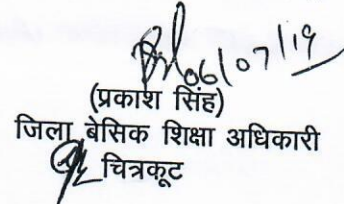 06/07/19
(प्रकाश सिंह)
जिला बेसिक शिक्षा अधिकारी
चित्रकूट